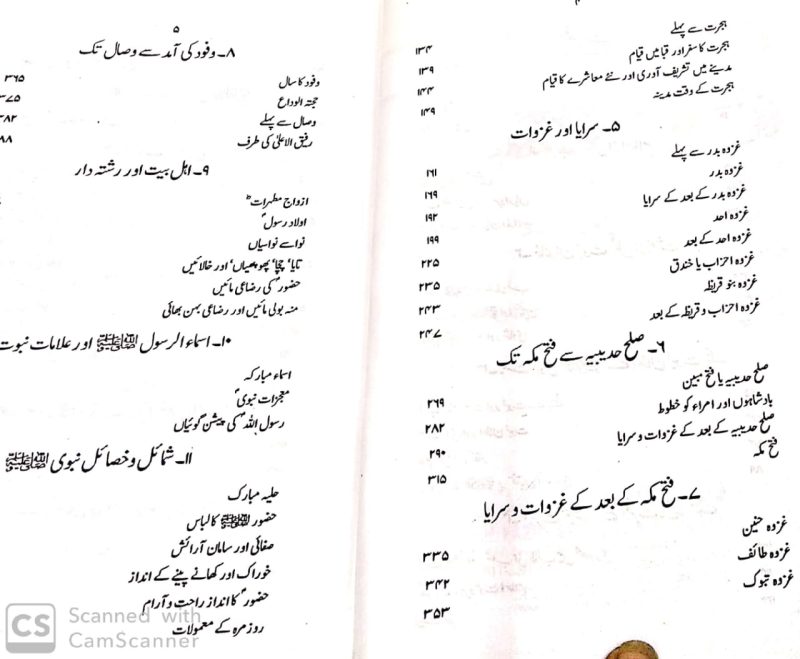 ۴
ہجرت سے پہلے
ہجرت کا سفر اور قبا میں قیام ۱۳۴
مدینے میں تشریف آوری اور نئے معاشرے کا قیام ۱۳۹
ہجرت کے وقت مدینہ ۱۴۴
۱۴۹
۵۔ سرایا اور غزوات
غزوہ بدر سے پہلے
غزوہ بدر ۱۶۱
غزوہ بدر کے بعد کے سرایا ۱۶۹
غزوہ احد ۱۹۲
غزوہ احد کے بعد ۱۹۹
غزوہ احزاب یا خندق ۲۲۵
غزوہ بنو قریظہ ۲۳۵
غزوہ احزاب و قریظہ کے بعد ۲۴۳
۲۴۷
۶۔ صلح حدیبیہ سے فتح مکہ تک
صلح حدیبیہ یا فتح مبین
بادشاہوں اور امراء کو خطوط ۲۶۹
صلح حدیبیہ کے بعد کے غزوات و سرایا ۲۸۲
فتح مکہ ۲۹۰
۳۱۵
۷۔ فتح مکہ کے بعد کے غزوات و سرایا
غزوہ حنین
غزوہ طائف ۳۳۵
غزوہ تبوک ۳۴۲
۳۵۳
۵
۸۔ وفود کی آمد سے وصال تک
وفود کا سال ۳۶۵
حجتہ الوداع ۳۷۵
وصال سے پہلے ۳۸۲
رفیق الاعلیٰ کی طرف ۸۸
۹۔ اہل بیت اور رشتہ دار
ازواج مطہراتؓ
اولاد رسولؐ
نواسے نواسیاں
تایا، چچا، پھوپھیاں، اور خالائیں
حضورؐ کی رضاعی مائیں
منہ بولی مائیں اور رضاعی بہن بھائی
۱۰۔ اسماء الرسول ﷺ اور علامات نبوت
اسماء مبارکہ
معجزات نبویؐ
رسول اللہؐ کی پیشن گوئیاں
۱۱۔ شمائل و خصائل نبوی ﷺ
حلیہ مبارک
حضور ﷺ کا لباس
صفائی اور سامان آرائش
خوراک اور کھانے پینے کے انداز
حضورؐ کا انداز راحت و آرام
روزمرہ کے معمولات
CS Scanned with
CamScanner